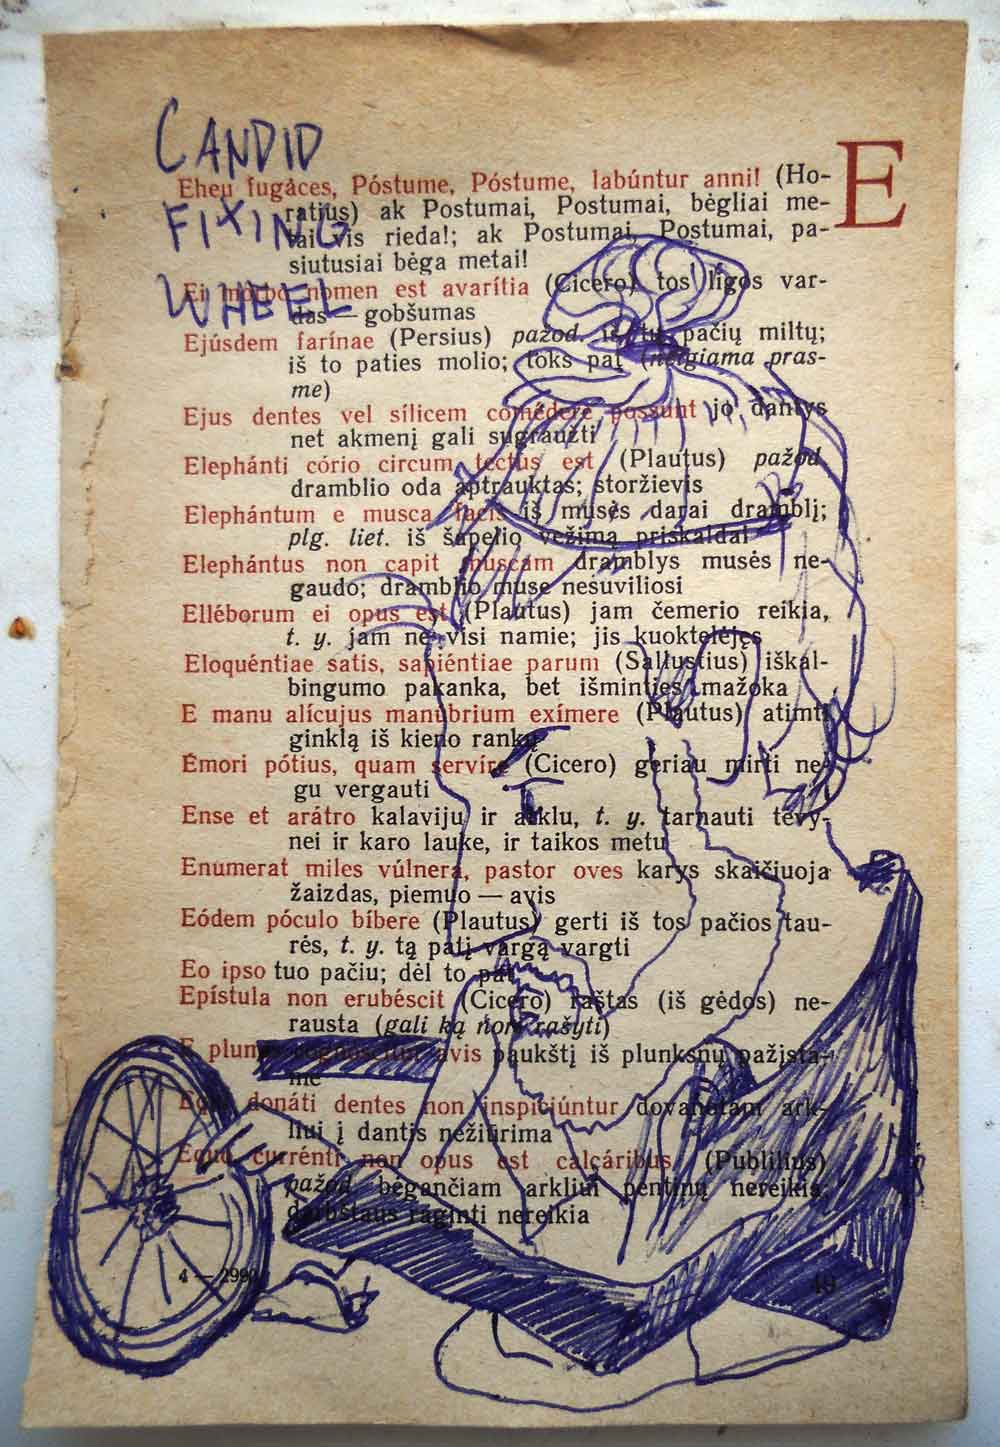 CANDID
FIXING
WHEEL
E
Eheu fugáces, Póstume, Póstume, labúntur anni! (Ho-
ratius) ak Postumai, Postumai, bėgliai me-
tai vis rieda!; ak Postumai, Postumai, pa-
siutusiai bėga metai!
Ei morbo nomen est avarítia (Cicero) tos ligos var-
das — gobšumas
Ejúsdem farínae (Persius) pažod. iš tų pačių miltų;
iš to paties molio; toks pat (neigiama pras-
me)
Ejus dentes vel sílicem comédere possunt jo dantys
net akmenį gali sugraužti
Elephánti cório circum tectus est (Plautus) pažod.
dramblio oda aptrauktas; storžievis
Elephántum e musca facis iš musės darai dramblį;
plg. liet. iš šapelio vežimą priskaldai
Elephántus non capit muscam dramblys musės ne-
gaudo; dramblio muse nesuviliosi
Elléborum ei opus est (Plautus) jam čemerio reikia,
t. y. jam ne visi namie; jis kuoktelėjęs
Eloquéntiae satis, sapiéntiae parum (Sallustius) iškal-
bingumo pakanka, bet išminties mažoka
E manu alícujus manúbrium exímere (Plautus) atimti
ginklą iš kieno rankų
Émori pótius, quam servíre (Cicero) geriau mirti ne-
gu vergauti
Ense et arátro kalaviju ir arklu, t. y. tarnauti tėvy-
nei ir karo lauke, ir taikos metu
Enumerat miles vúlnera, pastor oves karys skaičiuoja
žaizdas, piemuo — avis
Eódem póculo bíbere (Plautus) gerti iš tos pačios tau-
rės, t. y. tą patį vargą vargti
Eo ipso tuo pačiu; dėl to pat
Epístula non erubéscit (Cicero) raštas (iš gėdos) ne-
rausta (gali ką nori rašyti)
E plumis cognoscitur avis paukštį iš plunksnų pažįsta-
me
Equi donáti dentes non inspiciúntur dovanotam ark-
liui į dantis nežiūrima
Equo currénti non opus est calcáribus (Publilius)
pažod. bėgančiam arkliui pentinų nereikia;
darbštaus raginti nereikia
4 — 2990
49